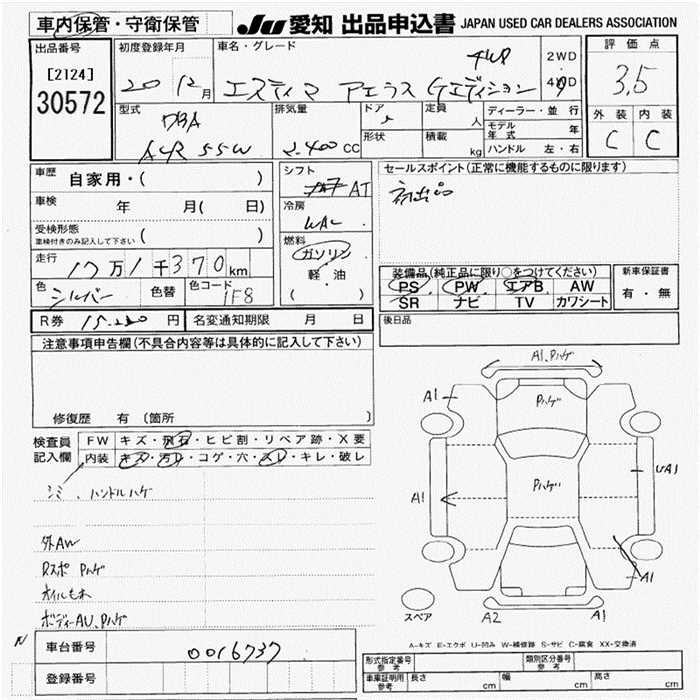 車内保管・守衛保管
JU 愛知 出品申込書 JAPAN USED CAR DEALERS ASSOCIATION
出品番号
[2124]
30572
初度登録年月
20 12月
車名・グレード
エスティマ アエラス Gエディション
2WD
4WD
評価点
3.5
外装 内装
C C
型式
DBA
ACR55W
排気量
2.400 CC
ドア
5
形状
定員
人
積載
kg
ディーラー・並行
モデル年式 年
ハンドル 左・右
車歴 自家用・( )
車検 年 月( 日)
受検形態
車検付きのみ記入して下さい ( )
走行 17万1千370km
色 シルバー 色替 色コード 1F8
シフト
AT
冷房
WAC
燃料
ガソリン
軽・油
( )
セールスポイント(正常に機能するものに限ります)
初出品
装備品(純正品に限り○をつけてください)
PS PW エアB AW
SR ナビ TV カワシート
新車保証書
有・無
R券 円
名変通知期限 月 日
後日品
注意事項申告欄(不具合内容等は具体的に記入して下さい)
修復歴 有 (箇所 )
検査員記入欄
FW キズ・飛石・ヒビ割・リペア跡・X要
内装 キズ・汚レ・コゲ・穴・スレ・キレ・破レ
シミ、ハンドルハゲ
外AW
Rスポ Pハゲ
オイルもれ
ボディーAU、Pハゲ
A1, Pハゲ
A1
Pハゲ
Pハゲ
A1
UA1
A1
スペア
A2
A1
A=キズ E=エクボ U=凹み W=補修跡 S=サビ C=腐食 XX=交換済
N
車台番号 0016737
登録番号
形式指定番号 参考
類別区分番号 参考
車庫証明用 参考 長さ cm 幅 cm 高さ cm